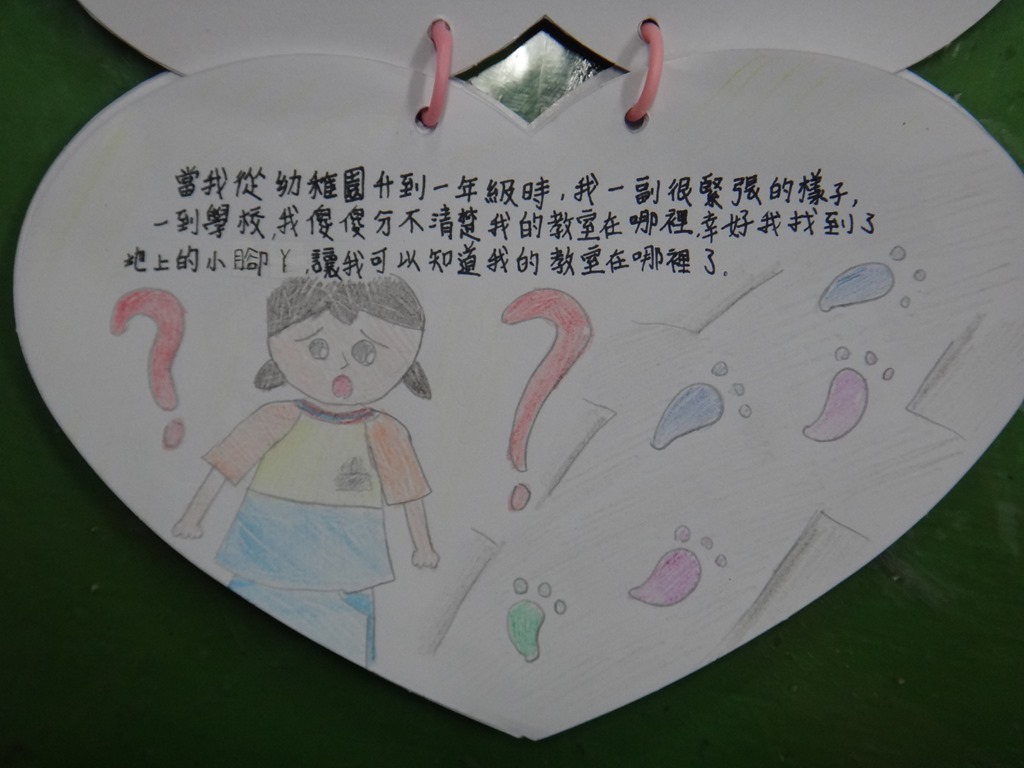 當我從幼稚園升到一年級時,我一副很緊張的樣子,
一到學校,我傻傻分不清楚我的教室在哪裡,幸好我找到了
地上的小腳丫,讓我可以知道我的教室在哪裡了。